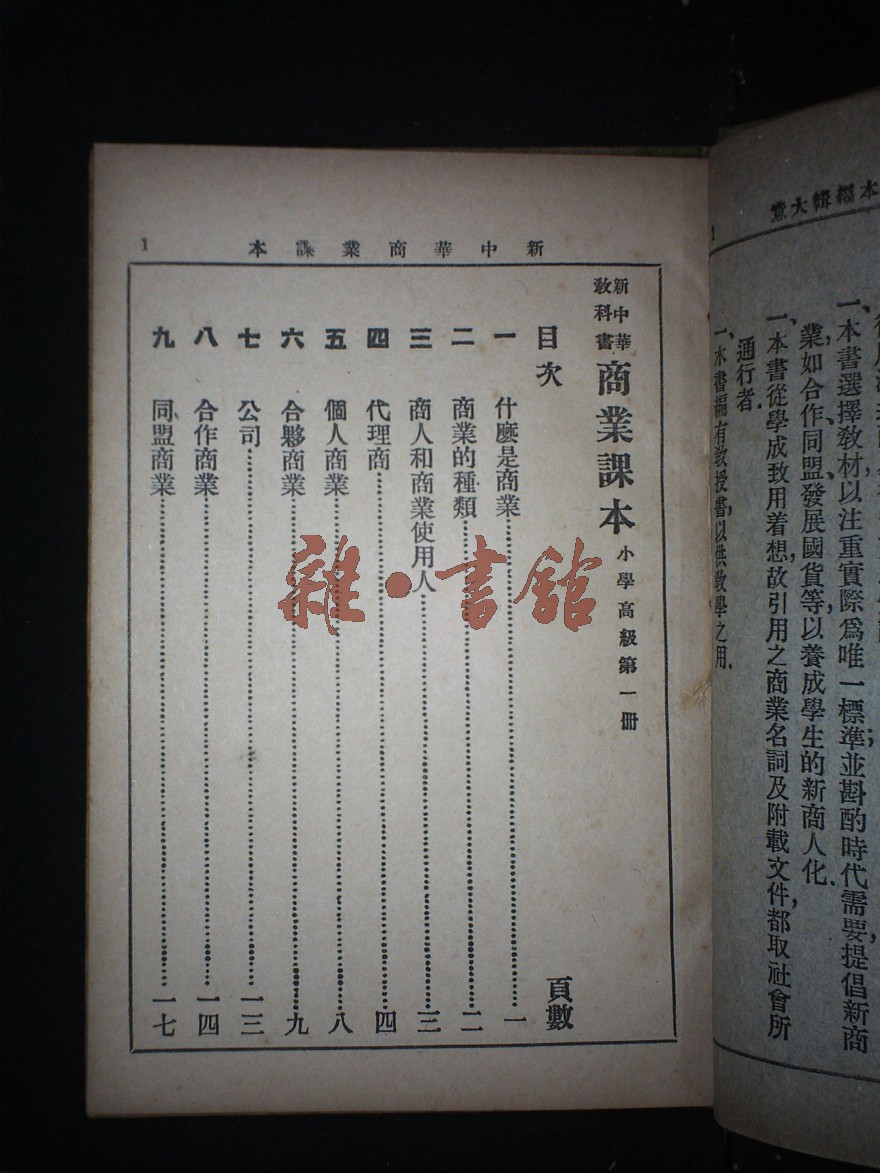 本編輯大意
業如合作,同盟,發展國貨等,以養成學生的新商人化.
一、本書選擇教材,以注重實際爲唯一標準;並斟酌時代需要,提倡新商
一、本書從學成致用着想,故引用之商業名詞及附載文件,都取社會所
通行者.
一、本書編有教授書,以供教學之用.
新中華商業課本
1
新中華
教科書
商業課本
小學高級第一冊
目次
頁數
一 什麼是商業 一
二 商業的種類 二
三 商人和商業使用人 三
四 代理商 四
五 個人商業 八
六 合夥商業 九
七 公司 一三
八 合作商業 一四
九 同盟商業 一七
雜·書館